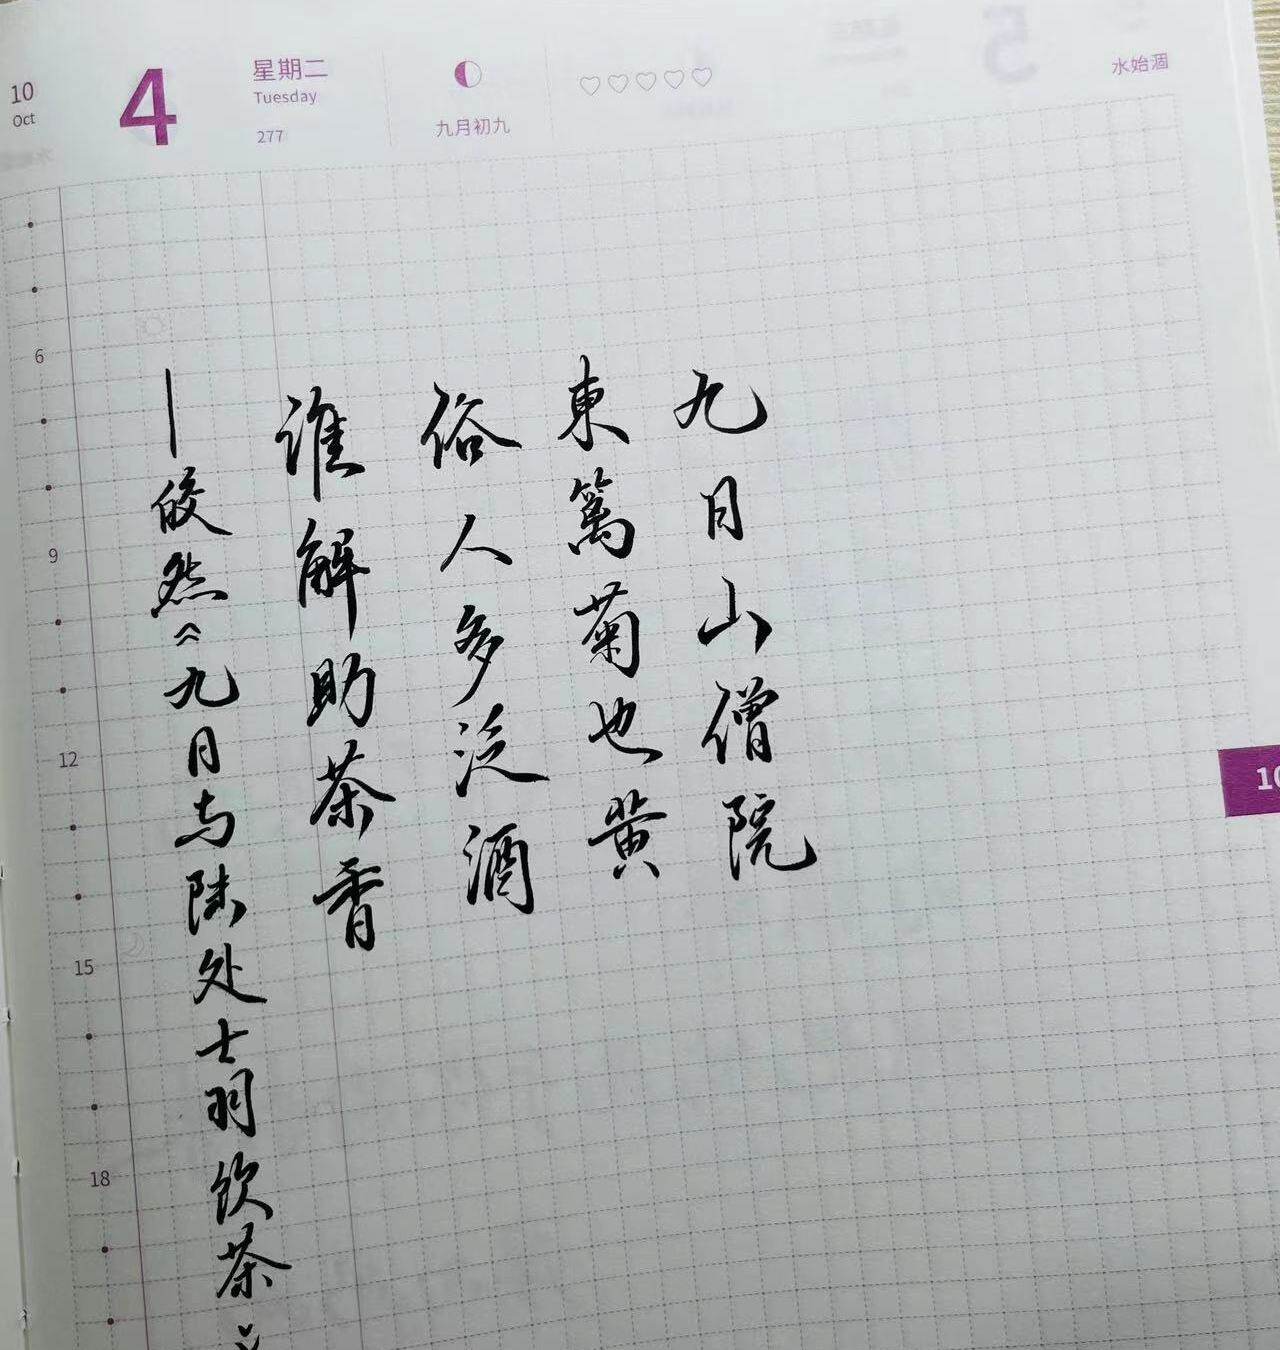 10
Oct
4
星期二
Tuesday
277
九月初九
水始涸
九日山僧院
東篱菊也黄
俗人多泛酒
谁解助茶香
—皎然《九日与陆处士羽饮茶》
6
9
12
15
18
10